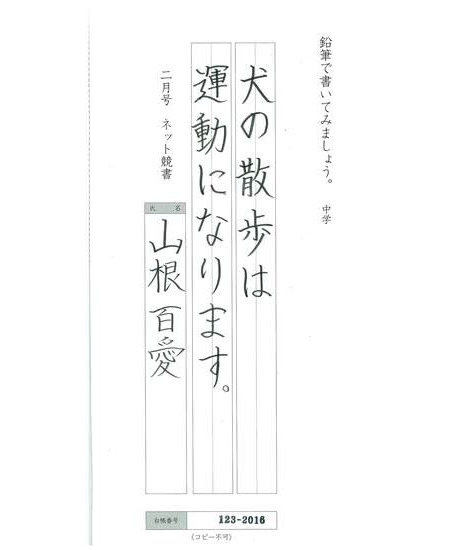 鉛筆で書いてみましょう。 中学
犬の散歩は
運動になります。
二月号 ネット競書
氏名
山根百愛
台帳番号 123-2016
(コピー不可)